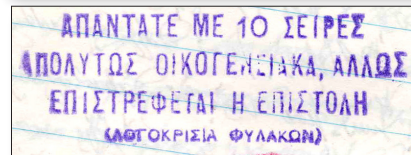 ΑΠΑΝΤΑΤΕ ΜΕ 10 ΣΕΙΡΕΣ
ΑΠΟΛΥΤΩΣ ΟΙΚΟΓΕΝΕΙΑΚΑ, ΑΛΛΩΣ
ΕΠΙΣΤΡΕΦΕΤΑΙ Η ΕΠΙΣΤΟΛΗ
(ΛΟΓΟΚΡΙΣΙΑ ΦΥΛΑΚΩΝ)